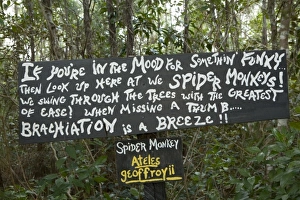 IF YOU'RE IN THE MOOD FOR SOMETHIN' FUNKY
THEN LOOK UP HERE AT WE SPIDER MONKEYS!
WE SWING THROUGH THE TREES WITH THE GREATEST
OF EASE! WHEN MISSING A THUMB....
BRACHIATION IS A BREEZE!!
SPIDER MONKEY
ATELES
geoffroyii